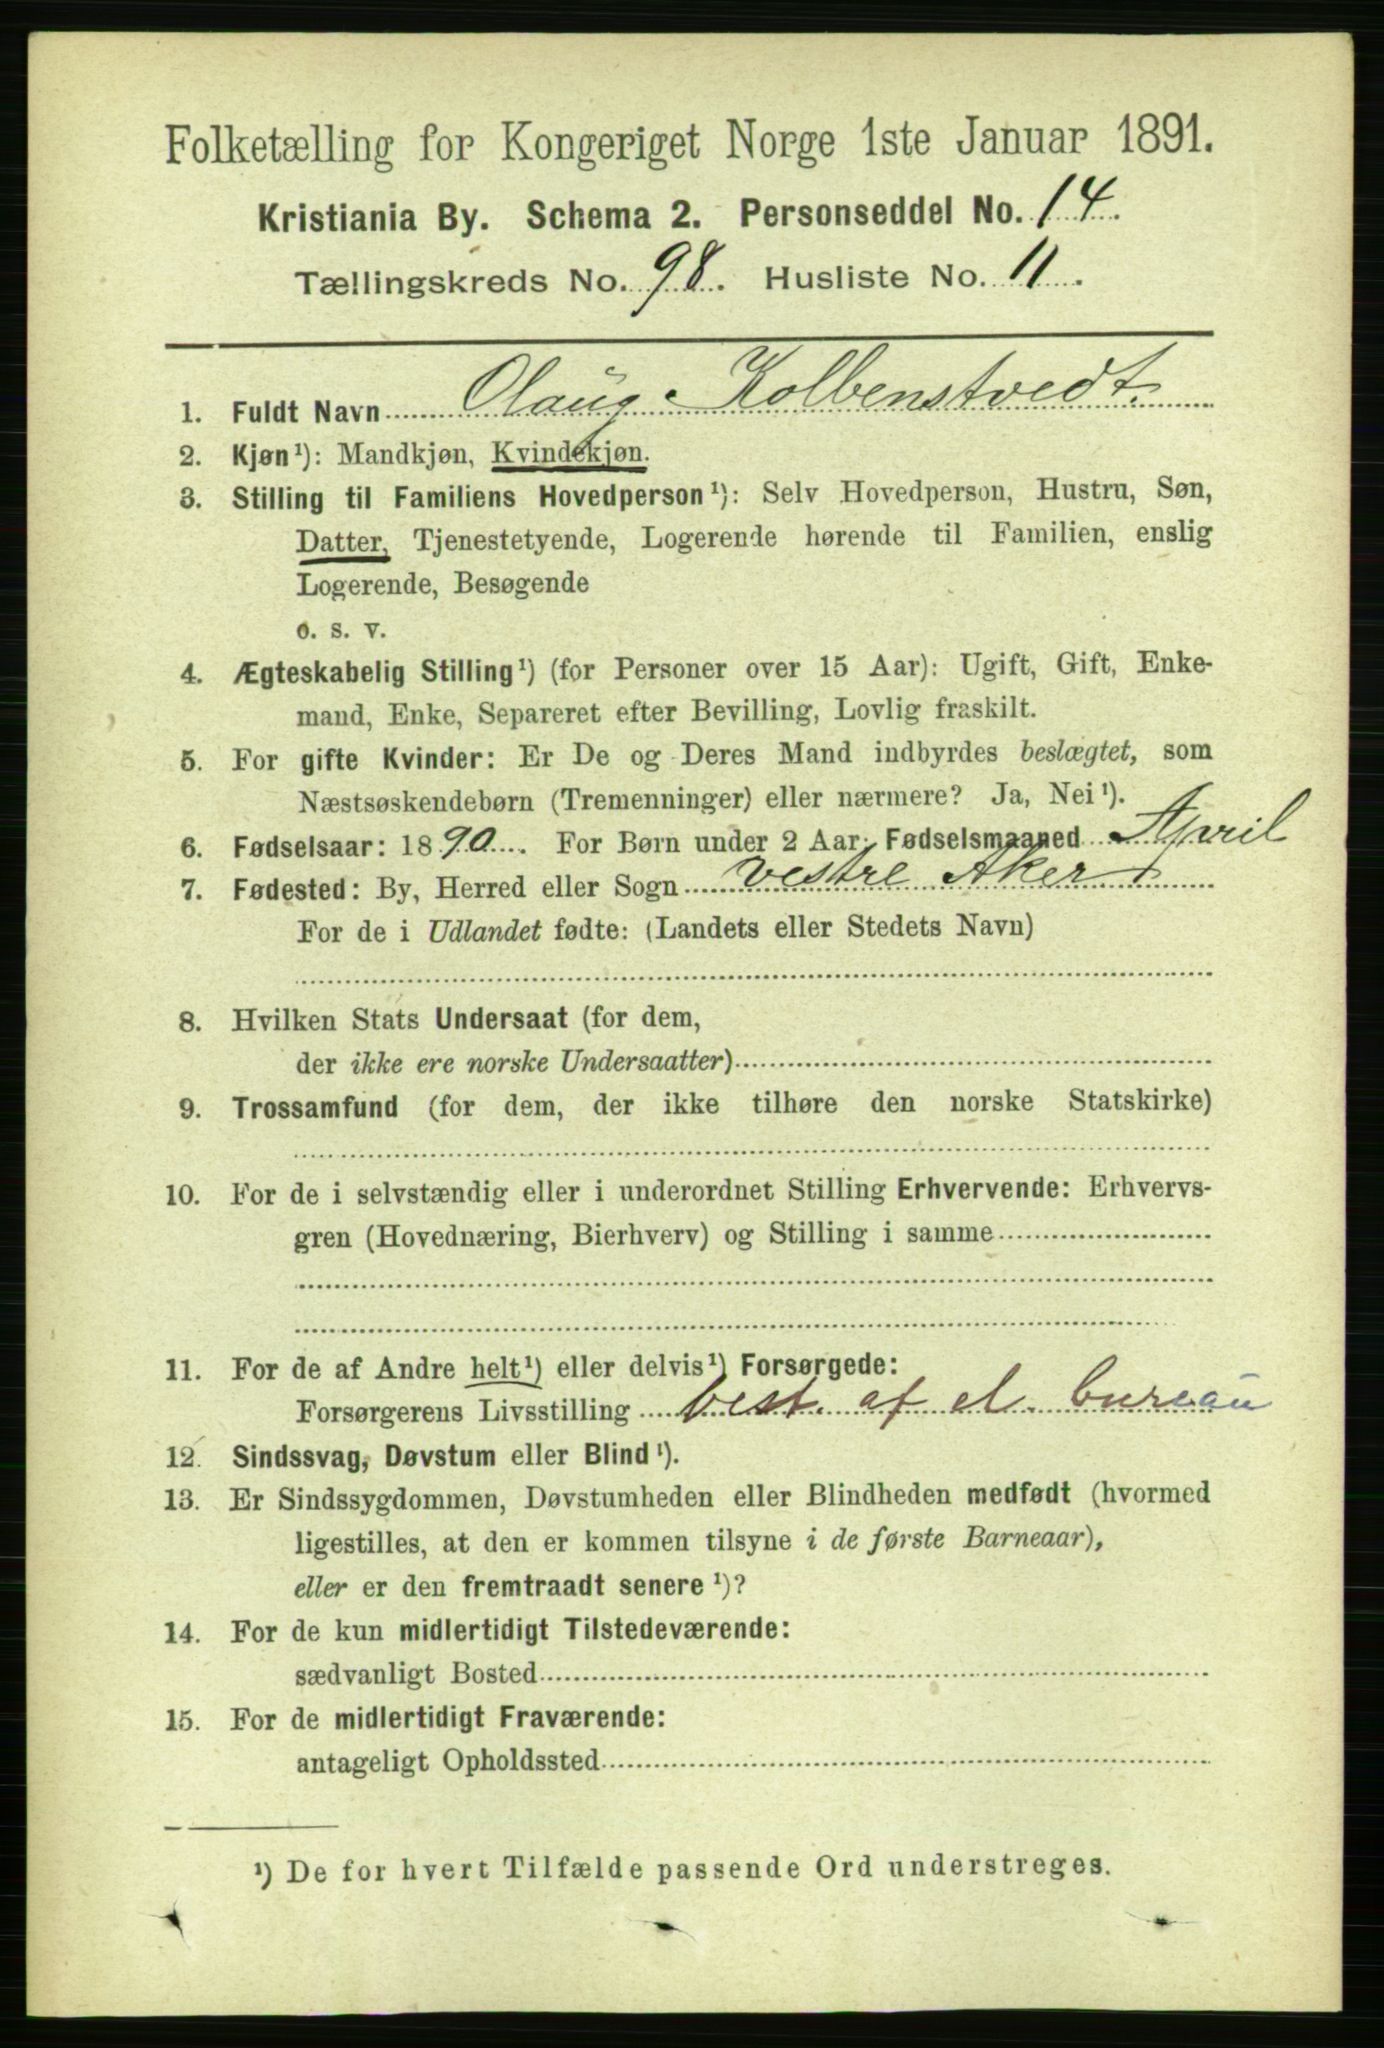 Folketælling for Kongeriget Norge 1ste Januar 1891.
Kristiania By. Schema 2. Personseddel No. 14.
Tællingskreds No. 98. Husliste No. 11.
1. Fuldt Navn Olaug Kolbenstvedt.
2. Kjøn¹): Mandkjøn, Kvindekjøn.
3. Stilling til Familiens Hovedperson¹): Selv Hovedperson, Hustru, Søn,
Datter, Tjenestetyende, Logerende hørende til Familien, enslig
Logerende, Besøgende
o. s. v.
4. Ægteskabelig Stilling¹) (for Personer over 15 Aar): Ugift, Gift, Enke-
mand, Enke, Separeret efter Bevilling, Lovlig fraskilt.
5. For gifte Kvinder: Er De og Deres Mand indbyrdes beslægtet, som
Næstsøskendebørn (Tremenninger) eller nærmere? Ja, Nei¹).
6. Fødselsaar: 1890. For Børn under 2 Aar: Fødselsmaaned April
7. Fødested: By, Herred eller Sogn vestre Aker
For de i Udlandet fødte: (Landets eller Stedets Navn)
8. Hvilken Stats Undersaat (for dem,
der ikke ere norske Undersaatter)
9. Trossamfund (for dem, der ikke tilhøre den norske Statskirke)
10. For de i selvstændig eller i underordnet Stilling Erhvervende: Erhvervs-
gren (Hovednæring, Bierhverv) og Stilling i samme
11. For de af Andre helt¹) eller delvis¹) Forsørgede:
Forsørgerens Livsstilling best. af el. bureau
12. Sindssvag, Døvstum eller Blind¹).
13. Er Sindssygdommen, Døvstumheden eller Blindheden medfødt (hvormed
ligestilles, at den er kommen tilsyne i de første Barneaar),
eller er den fremtraadt senere¹)?
14. For de kun midlertidigt Tilstedeværende:
sædvanligt Bosted
15. For de midlertidigt Fraværende:
antageligt Opholdssted
¹) De for hvert Tilfælde passende Ord understreges.